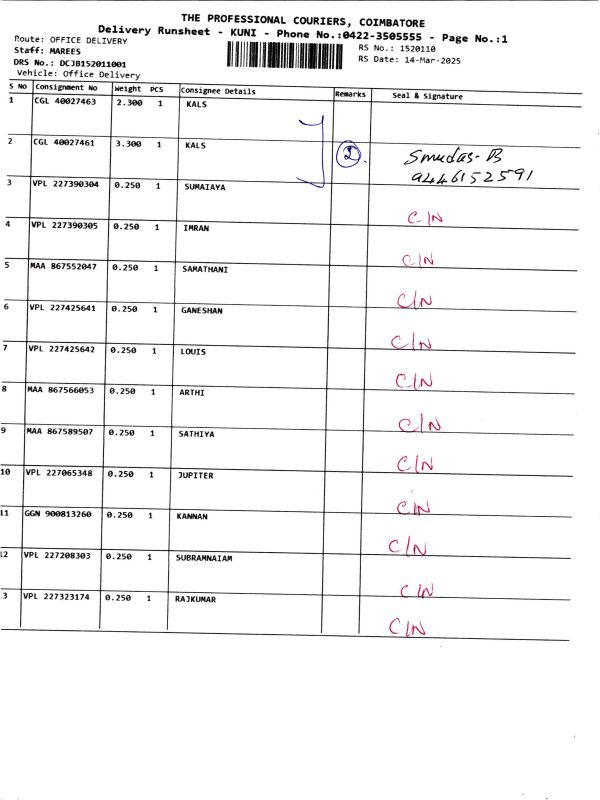 THE PROFESSIONAL COURIERS, COIMBATORE
Delivery Runsheet - KUNI - Phone No.:0422-3505555 - Page No.:1
Route: OFFICE DELIVERY
Staff: MAREES
DRS No.: DCJB152011001
Vehicle: Office Delivery
RS No.: 1520110
RS Date: 14-Mar-2025
S NO Consignment No Weight PCS Consignee Details Remarks Seal & Signature
1 CGL 40027463 2.300 1 KALS
2 CGL 40027461 3.300 1 KALS 2
9446152591
3 VPL 227390304 0.250 1 SUMAIAYA C/N
4 VPL 227390305 0.250 1 IMRAN C/N
5 MAA 867552047 0.250 1 SAMATHANI C/N
6 VPL 227425641 0.250 1 GANESHAN C/N
7 VPL 227425642 0.250 1 LOUIS C/N
8 MAA 867566053 0.250 1 ARTHI C/N
9 MAA 867589507 0.250 1 SATHIYA C/N
10 VPL 227065348 0.250 1 JUPITER C/N
11 GGN 900813260 0.250 1 KANNAN C/N
12 VPL 227208303 0.250 1 SUBRAMNAIAM C/N
3 VPL 227323174 0.250 1 RAJKUMAR C/N